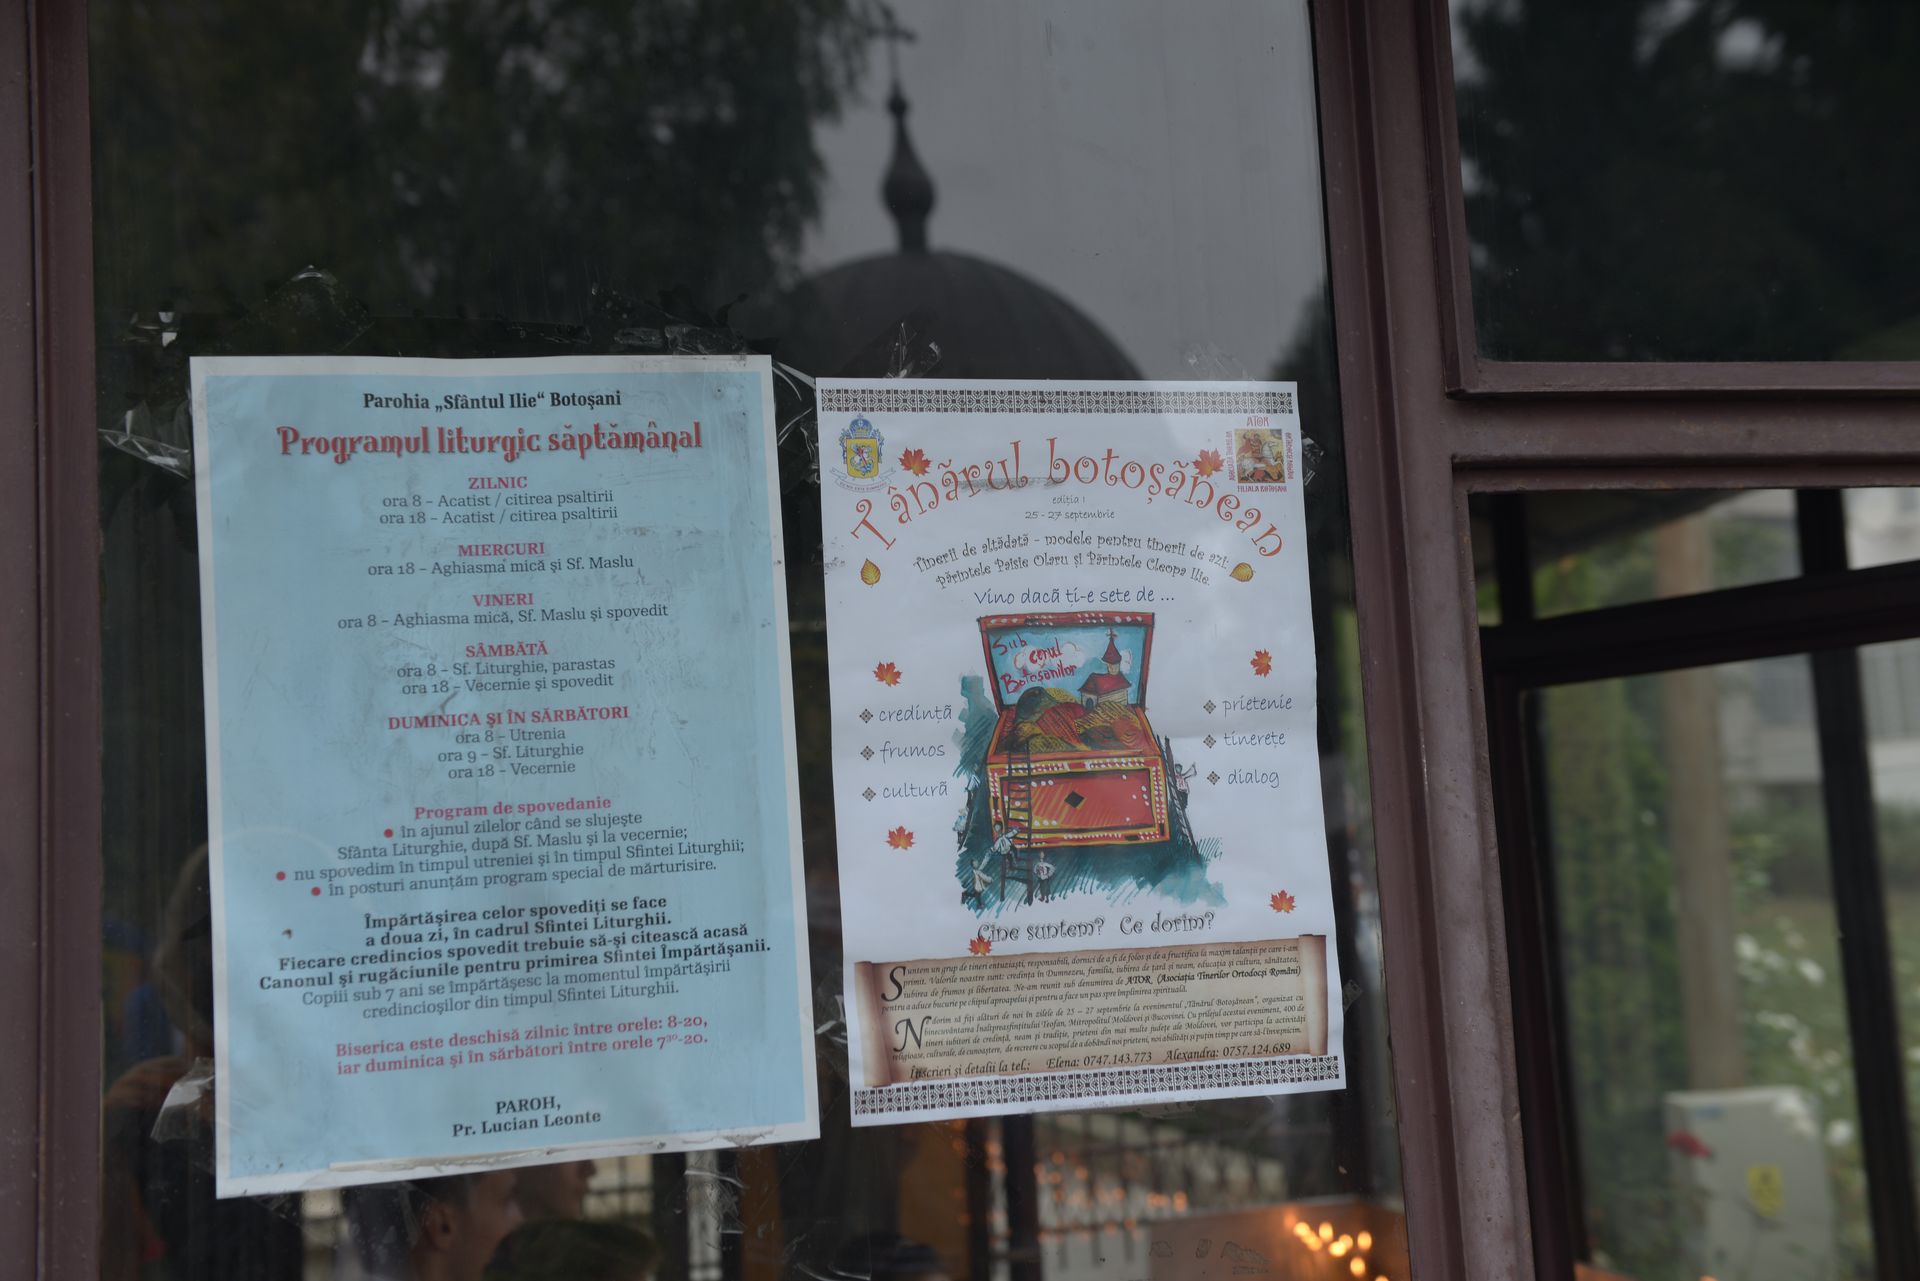 Parohia „Sfântul Ilie“ Botoşani
Programul liturgic săptămânal
ZILNIC
ora 8 – Acatist / citirea psaltirii
ora 18 – Acatist / citirea psaltirii
MIERCURI
ora 18 – Aghiasma mică şi Sf. Maslu
VINERI
ora 8 – Aghiasma mică, Sf. Maslu şi spovedit
SÂMBĂTĂ
ora 8 – Sf. Liturghie, parastas
ora 18 – Vecernie şi spovedit
DUMINICA ŞI ÎN SĂRBĂTORI
ora 8 – Utrenia
ora 9 – Sf. Liturghie
ora 18 – Vecernie
Program de spovedanie
● în ajunul zilelor când se slujeşte
Sfânta Liturghie, după Sf. Maslu şi la vecernie;
● nu spovedim în timpul utreniei şi în timpul Sfintei Liturghii;
● în posturi anunţăm program special de mărturisire.
Împărtăşirea celor spovediţi se face
a doua zi, în cadrul Sfintei Liturghii.
Fiecare credincios spovedit trebuie să-şi citească acasă
Canonul şi rugăciunile pentru primirea Sfintei Împărtăşanii.
Copiii sub 7 ani se împărtăşesc la momentul împărtăşirii
credincioşilor din timpul Sfintei Liturghii.
Biserica este deschisă zilnic între orele: 8-20,
iar duminica şi în sărbători între orele 7³⁰-20.
PAROH,
Pr. Lucian Leonte
ATOR
FILIALA BOTOSANI
Tânărul botoșănean
ediția I
25 - 27 septembrie
Tinerii de altădată - modele pentru tinerii de azi:
Părintele Paisie Olaru și Părintele Cleopa Ilie.
Vino dacă ți-e sete de ...
Sub
cerul
Botoșanilor
credință
frumos
cultură
prietenie
tinerețe
dialog
Cine suntem? Ce dorim?
Suntem un grup de tineri entuziaști, responsabili, dornici de a fi de folos și de a fructifica la maxim talanții pe care i-am
primit. Valorile noastre sunt: credința în Dumnezeu, familia, iubirea de țară și neam, educația și cultura, sănătatea,
iubirea de frumos și libertatea. Ne-am reunit sub denumirea de ATOR (Asociația Tinerilor Ortodocși Români)
pentru a aduce bucurie pe chipul aproapelui și pentru a face un pas spre împlinirea spirituală.
Ne dorim să fiți alături de noi în zilele de 25 – 27 septembrie la evenimentul „Tânărul Botoșănean”, organizat cu
binecuvântarea Înaltpreasfințitului Teofan, Mitropolitul Moldovei și Bucovinei. Cu prilejul acestui eveniment, 400 de
tineri iubitori de credință, neam și tradiție, prieteni din mai multe județe ale Moldovei, vor participa la activități
religioase, culturale, de cunoaștere, de recreere cu scopul de a dobândi noi prieteni, noi abilități și puțin timp pe care să-l înveșnicim.
Înscrieri și detalii la tel.: Elena: 0747.143.773 Alexandra: 0757.124.689